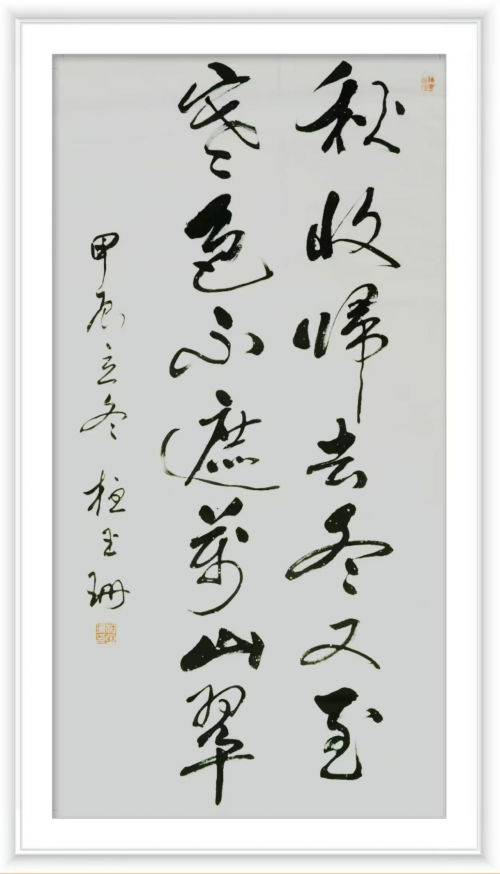 秋收歸去冬又至
寒色不遮萬山翠
甲辰立冬 桂玉珊